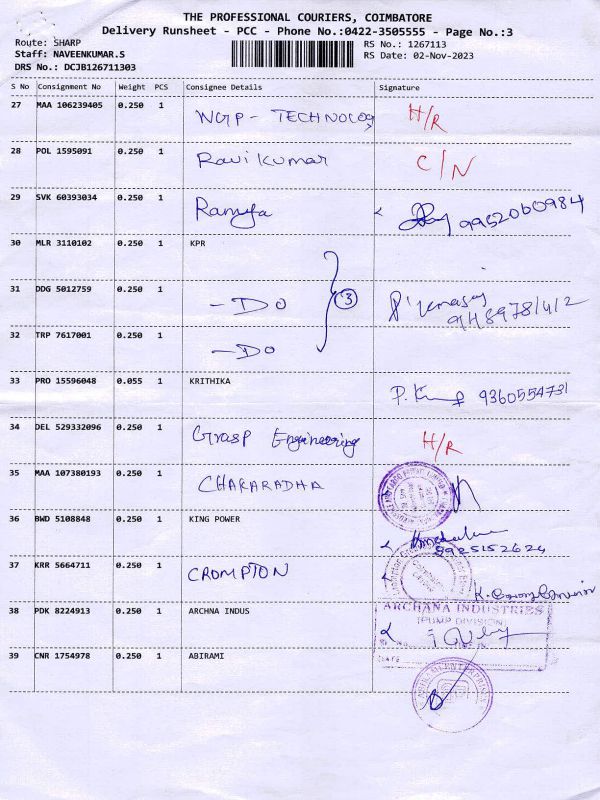 THE PROFESSIONAL COURIERS, COIMBATORE
Delivery Runsheet - PCC - Phone No.:0422-3505555 - Page No.:3
Route: SHARP
RS No.: 1267113
Staff: NAVEENKUMAR.S
RS Date: 02-Nov-2023
DRS No.: DCJB126711303
S No Consignment No Weight PCS Consignee Details Signature
27 MAA 106239405 0.250 1 NGP - TECHNOLOGY H/R
28 POL 1595091 0.250 1 Ravi Kumar C/N
29 SVK 60393034 0.250 1 Ramya 9952060984
30 MLR 3110102 0.250 1 KPR
31 DDG 5012759 0.250 1 - DO 3
32 TRP 7617001 0.250 1 - DO
33 PRO 15596048 0.055 1 KRITHIKA 9360554731
34 DEL 529332096 0.250 1 Grasp Engineering H/R
35 MAA 107380193 0.250 1 CHAKARADHA
36 BWD 5108848 0.250 1 KING POWER
37 KRR 5664711 0.250 1 CROMPTON
38 PDK 8224913 0.250 1 ARCHNA INDUS ARCHANA INDUSTRIES
(PUMP DIVISION)
39 CNR 1754978 0.250 1 ABIRAMI